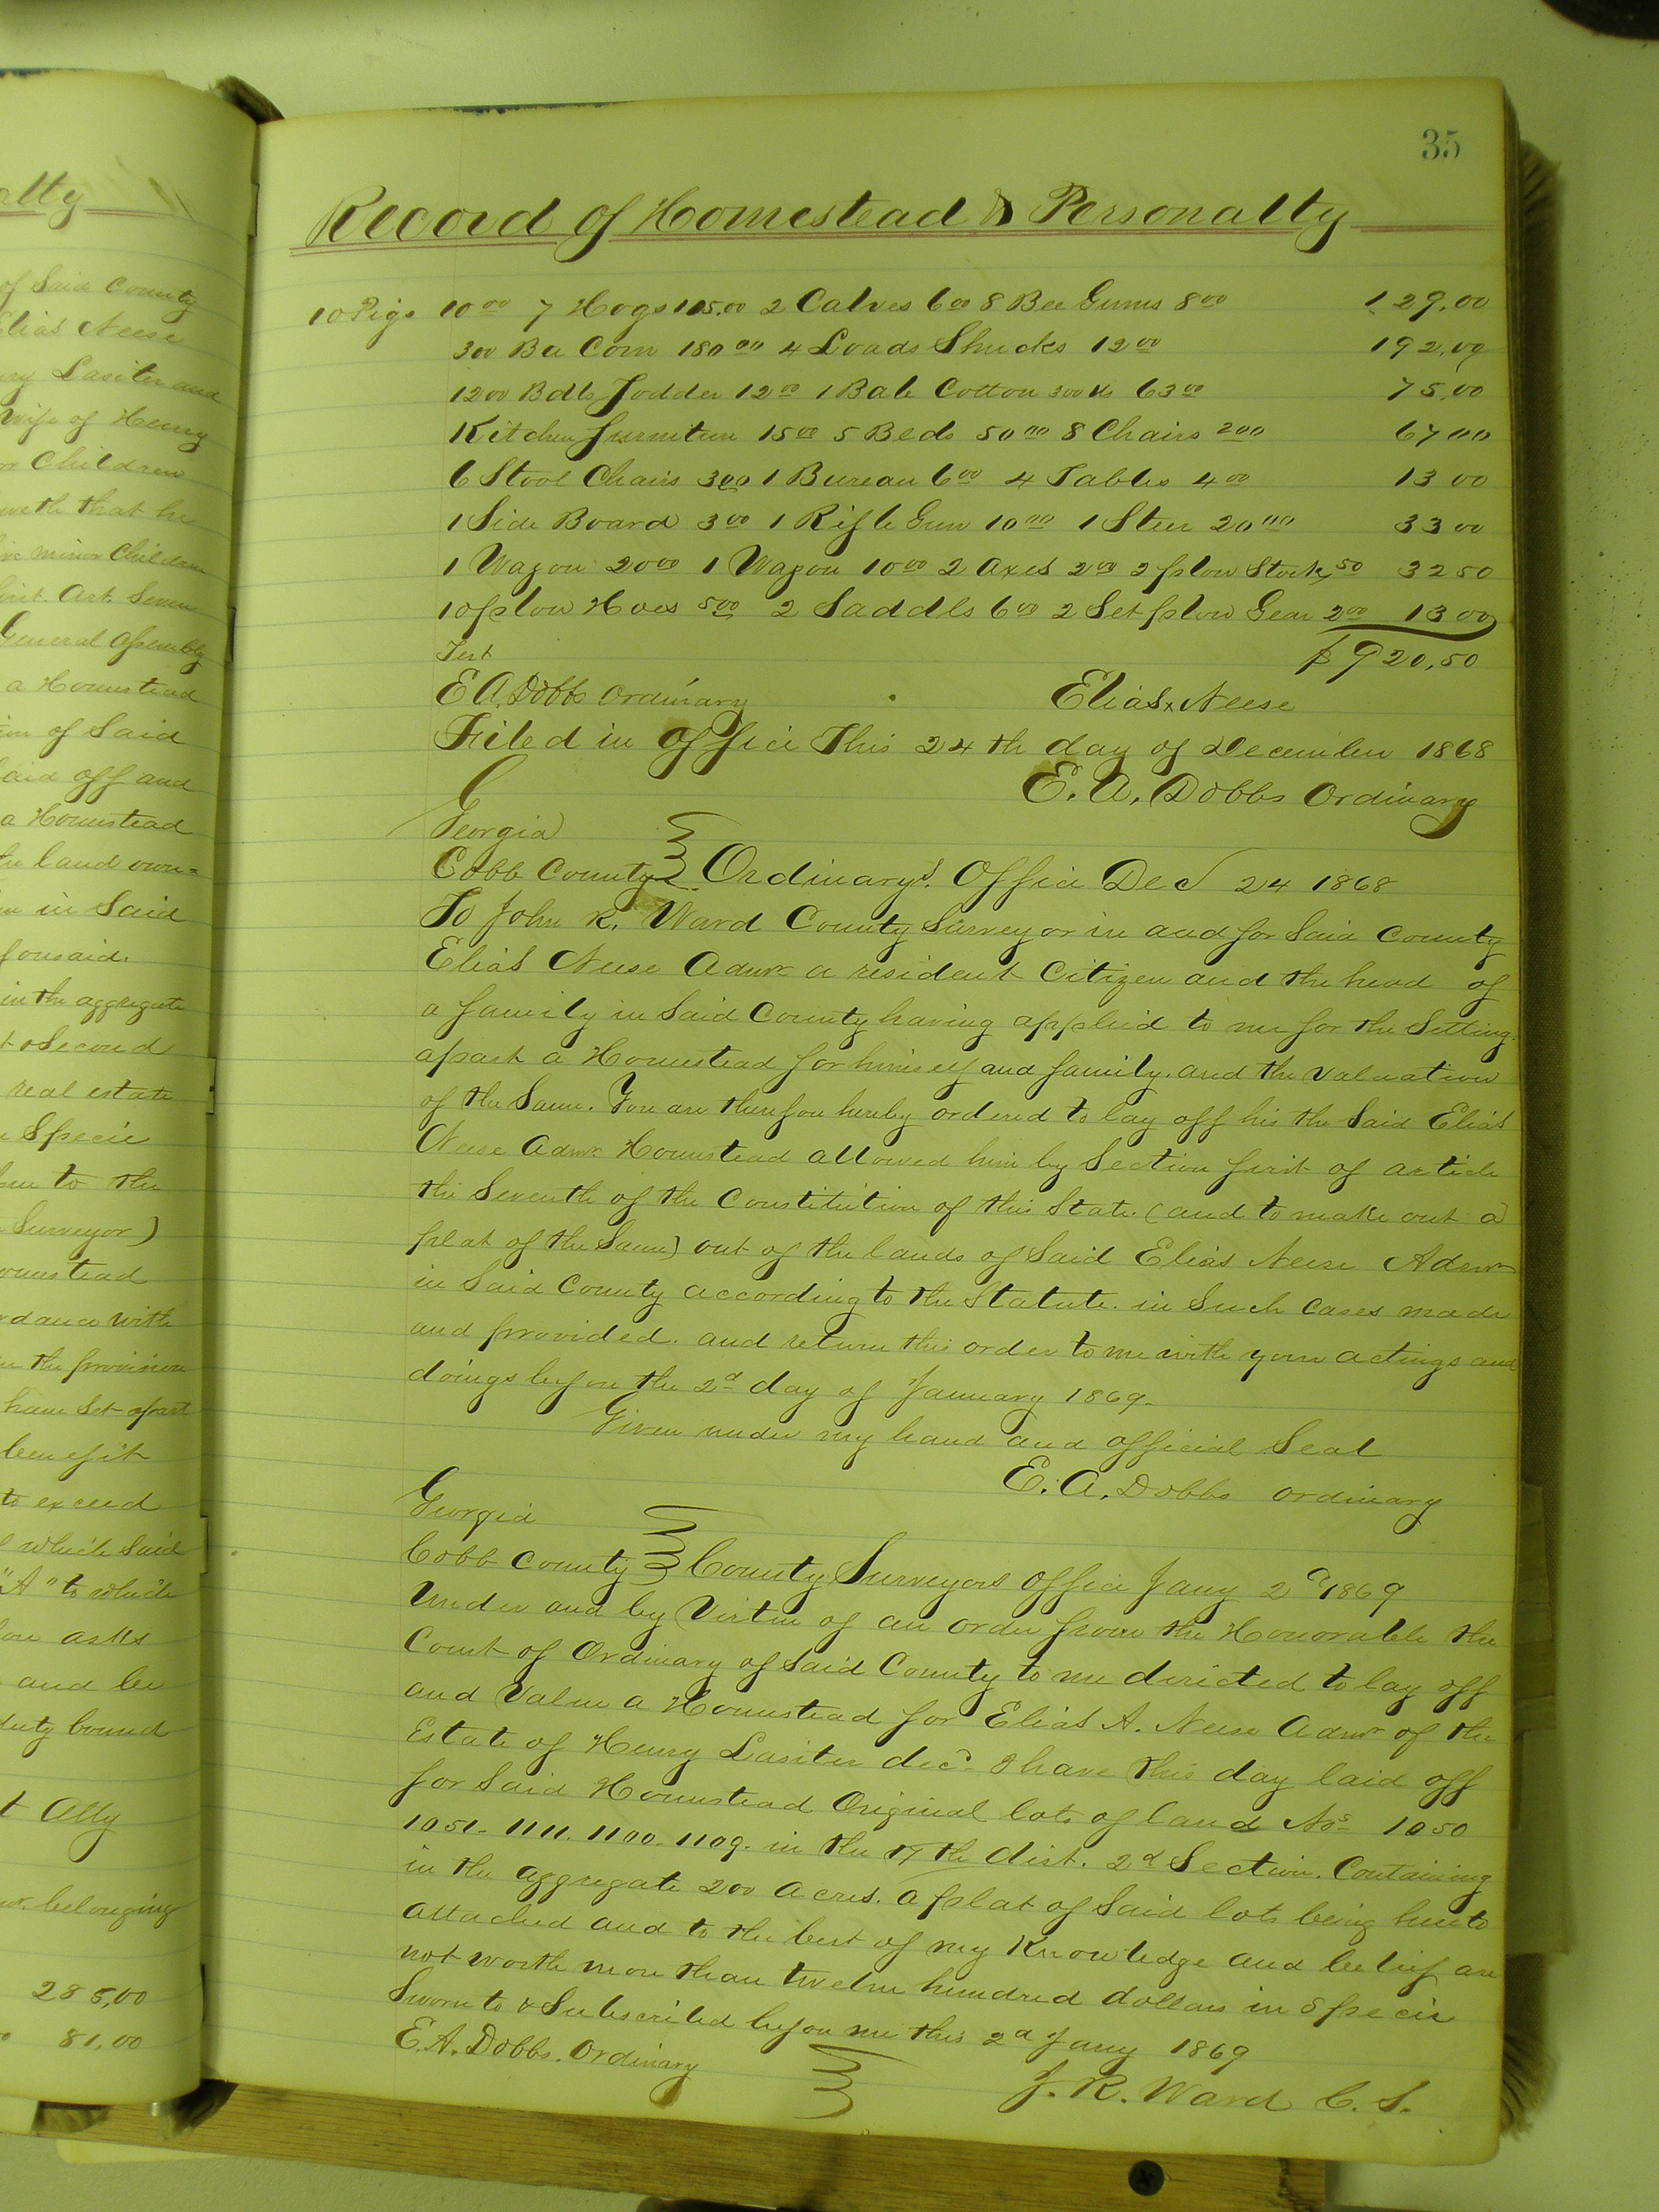 alty
of Said County
Elias Neese
Lasiter and
Wife of Henry
Children
that he
minor Children
Art. Seven
General Assembly
a Homestead
of Said
laid off and
a Homestead
land own=
in Said
in the aggregate
Second
real estate
Specie
to the
Surveyor)
with
the provision
have Set apart
benefit
to exceed
which Said
"A" to which
asks
and be
duty bound
Atty
belonging
285,00
81,00
35
Record of Homestead & Personalty
10 Pigs 10 00 7 Hogs 105.00 2 Calves 6 00 8 Bee Gums 8 00 129,00
300 Bu Corn 180 00 4 Loads Shucks 12 00 192,00
1200 Bdls Fodder 12 00 1 Bale Cotton 300 lbs 63 00 75,00
Kitchen furniture 15 00 5 Beds 50 00 8 Chairs 2 00 67 00
6 Stool Chairs 3 00 1 Bureau 6 00 4 Tables 4 00 13 00
1 Side Board 3 00 1 Rifle Gun 10 00 1 Steer 20 00 33 00
1 Wagon 20 00 1 Wagon 10 00 2 Axes 2 00 2 plow Stocks 50 32 50
10 plow Hoes 5 00 2 Saddls 6 00 2 Set plow Gear 2 00 13 00
Test $920,50
E A. Dobbs Ordinary Elias x Neese
Filed in office This 24th day of December 1868
E. A. Dobbs Ordinary
Georgia
Cobb County Ordinary's Office Dec 24 1868
To John R. Ward County Surveyor in and for Said County
Elias Neese Admr a resident Citizen and the head of
a family in Said County having applied to me for the Setting
apart a Homestead for himself and family. and the valuation
of the Same. You are therefore hereby ordered to lay off his the Said Elias
Neese Admr Homestead allowed him by Section first of article
the Seventh of the Constitution of this State. (and to make out a
plat of the Same) out of the lands of Said Elias Neese Admr
in Said County according to the Statute. in Such Cases made
and provided. and return this order to me with your actings and
doings before the 2d day of January 1869.
Given under my hand and official Seal
E. A. Dobbs Ordinary
Georgia
Cobb County County Surveyors office Jany 2d 1869
Under and by Virtue of an order from the Honorable the
Court of Ordinary of Said County to me directed to lay off
and Value a Homestead for Elias A. Neese Admr of the
Estate of Henry Lasiter decd I have this day laid off
for Said Homestead Original lots of land Nos 1050
1051. 1111. 1100. 1109. in the 17th dist. 2d Section. Containing
in the aggregate 200 acres. a plat of Said lots being hereto
attached and to the best of my Knowledge and belief are
not worth more than twelve hundred dollars in Specie
Sworn to & Subscribed before me this 2d Jany 1869
E. A. Dobbs. Ordinary J. R. Ward C. S.